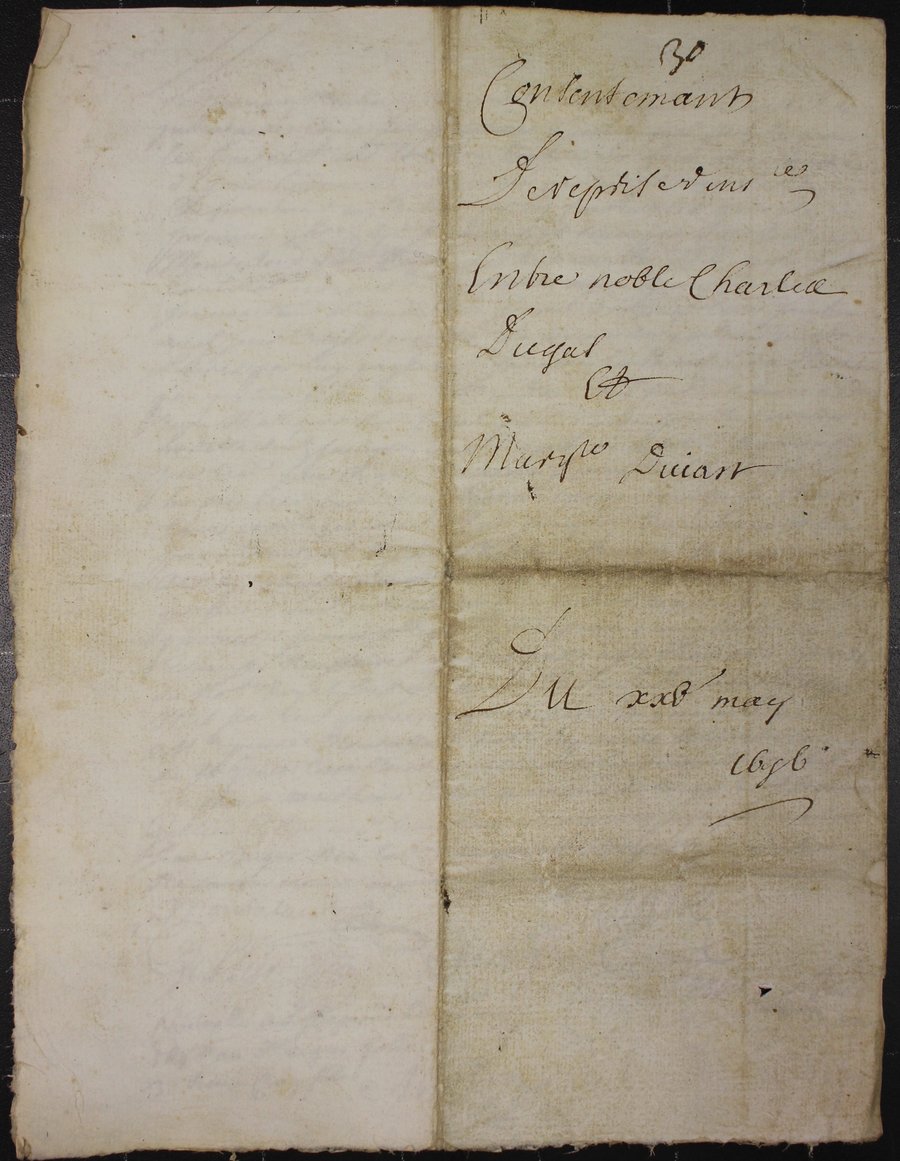 30
Consentemant
De reprise d'ins^ce
Entre noble Charles
Dugal
Et
Marg^te Duiart
Du xxv^e may
1696